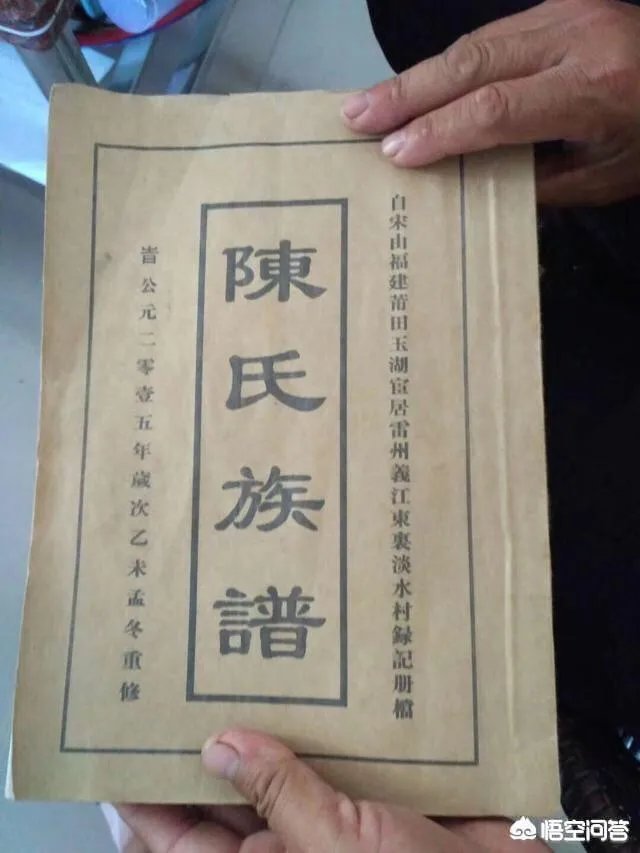 自宋由福建莆田玉湖宦居雷州義江東裏淡水村録記册檔
陳氏族譜
旹公元二零壹五年歲次乙未孟冬重修
悟空问答